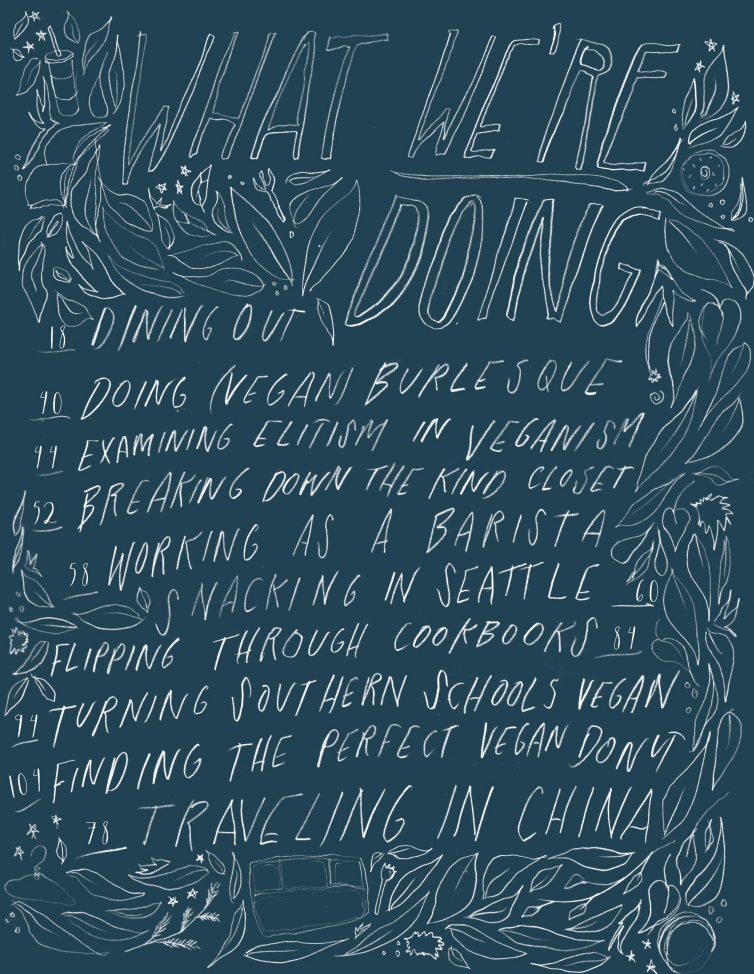 WHAT WE'RE
DOING
18 DINING OUT
40 DOING (VEGAN) BURLESQUE
44 EXAMINING ELITISM IN VEGANISM
52 BREAKING DOWN THE KIND CLOSET
58 WORKING AS A BARISTA
SNACKING IN SEATTLE 60
FLIPPING THROUGH COOKBOOKS 84
94 TURNING SOUTHERN SCHOOLS VEGAN
104 FINDING THE PERFECT VEGAN DONUT
78 TRAVELING IN CHINA